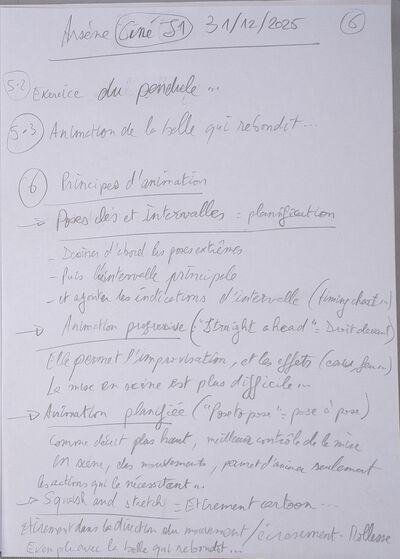 Arsène Ciné S1 31/12/2025 6
5.2 Exercice du pendule...
5.3 Animation de la balle qui rebondit...
6 Principes d'animation
→ Poses clés et intervalles = planification
- Dessiner d'abord les poses extrêmes
- Puis l'intervalle principale
- et ajouter des indications d'intervalle (timing chart...)
→ Animation progressive ("Straight ahead" = Droit devant)
Elle permet l'improvisation, et les effets (eau, feu...)
La mise en scène est plus difficile...
→ Animation planifiée ("Pose to pose" = pose à pose)
Comme décrit plus haut, meilleur contrôle de la mise
en scène, des mouvements, permet d'animer seulement
les actions qui le nécessitent...
→ Squash and stretch = Etirement cartoon...
Etirement dans la direction du mouvement / écrasement - Mollesse
Exemple avec la balle qui rebondit...